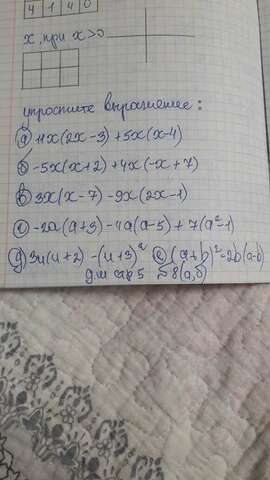 4 1 4 0
x, при x>0
упростите выражение:
а) 11x(2x-3) +5x(x-4)
б) -5x(x+2) +4x(-x+7)
в) 3x(x-7) -9x(2x-1)
г) -2a(a+3) -4a(a-5) + 7(a²-1)
д) 3и(и+2) -(и+3)² е) (a+b)²-2b(a-b)
д.м стр 5 №8(а,б)